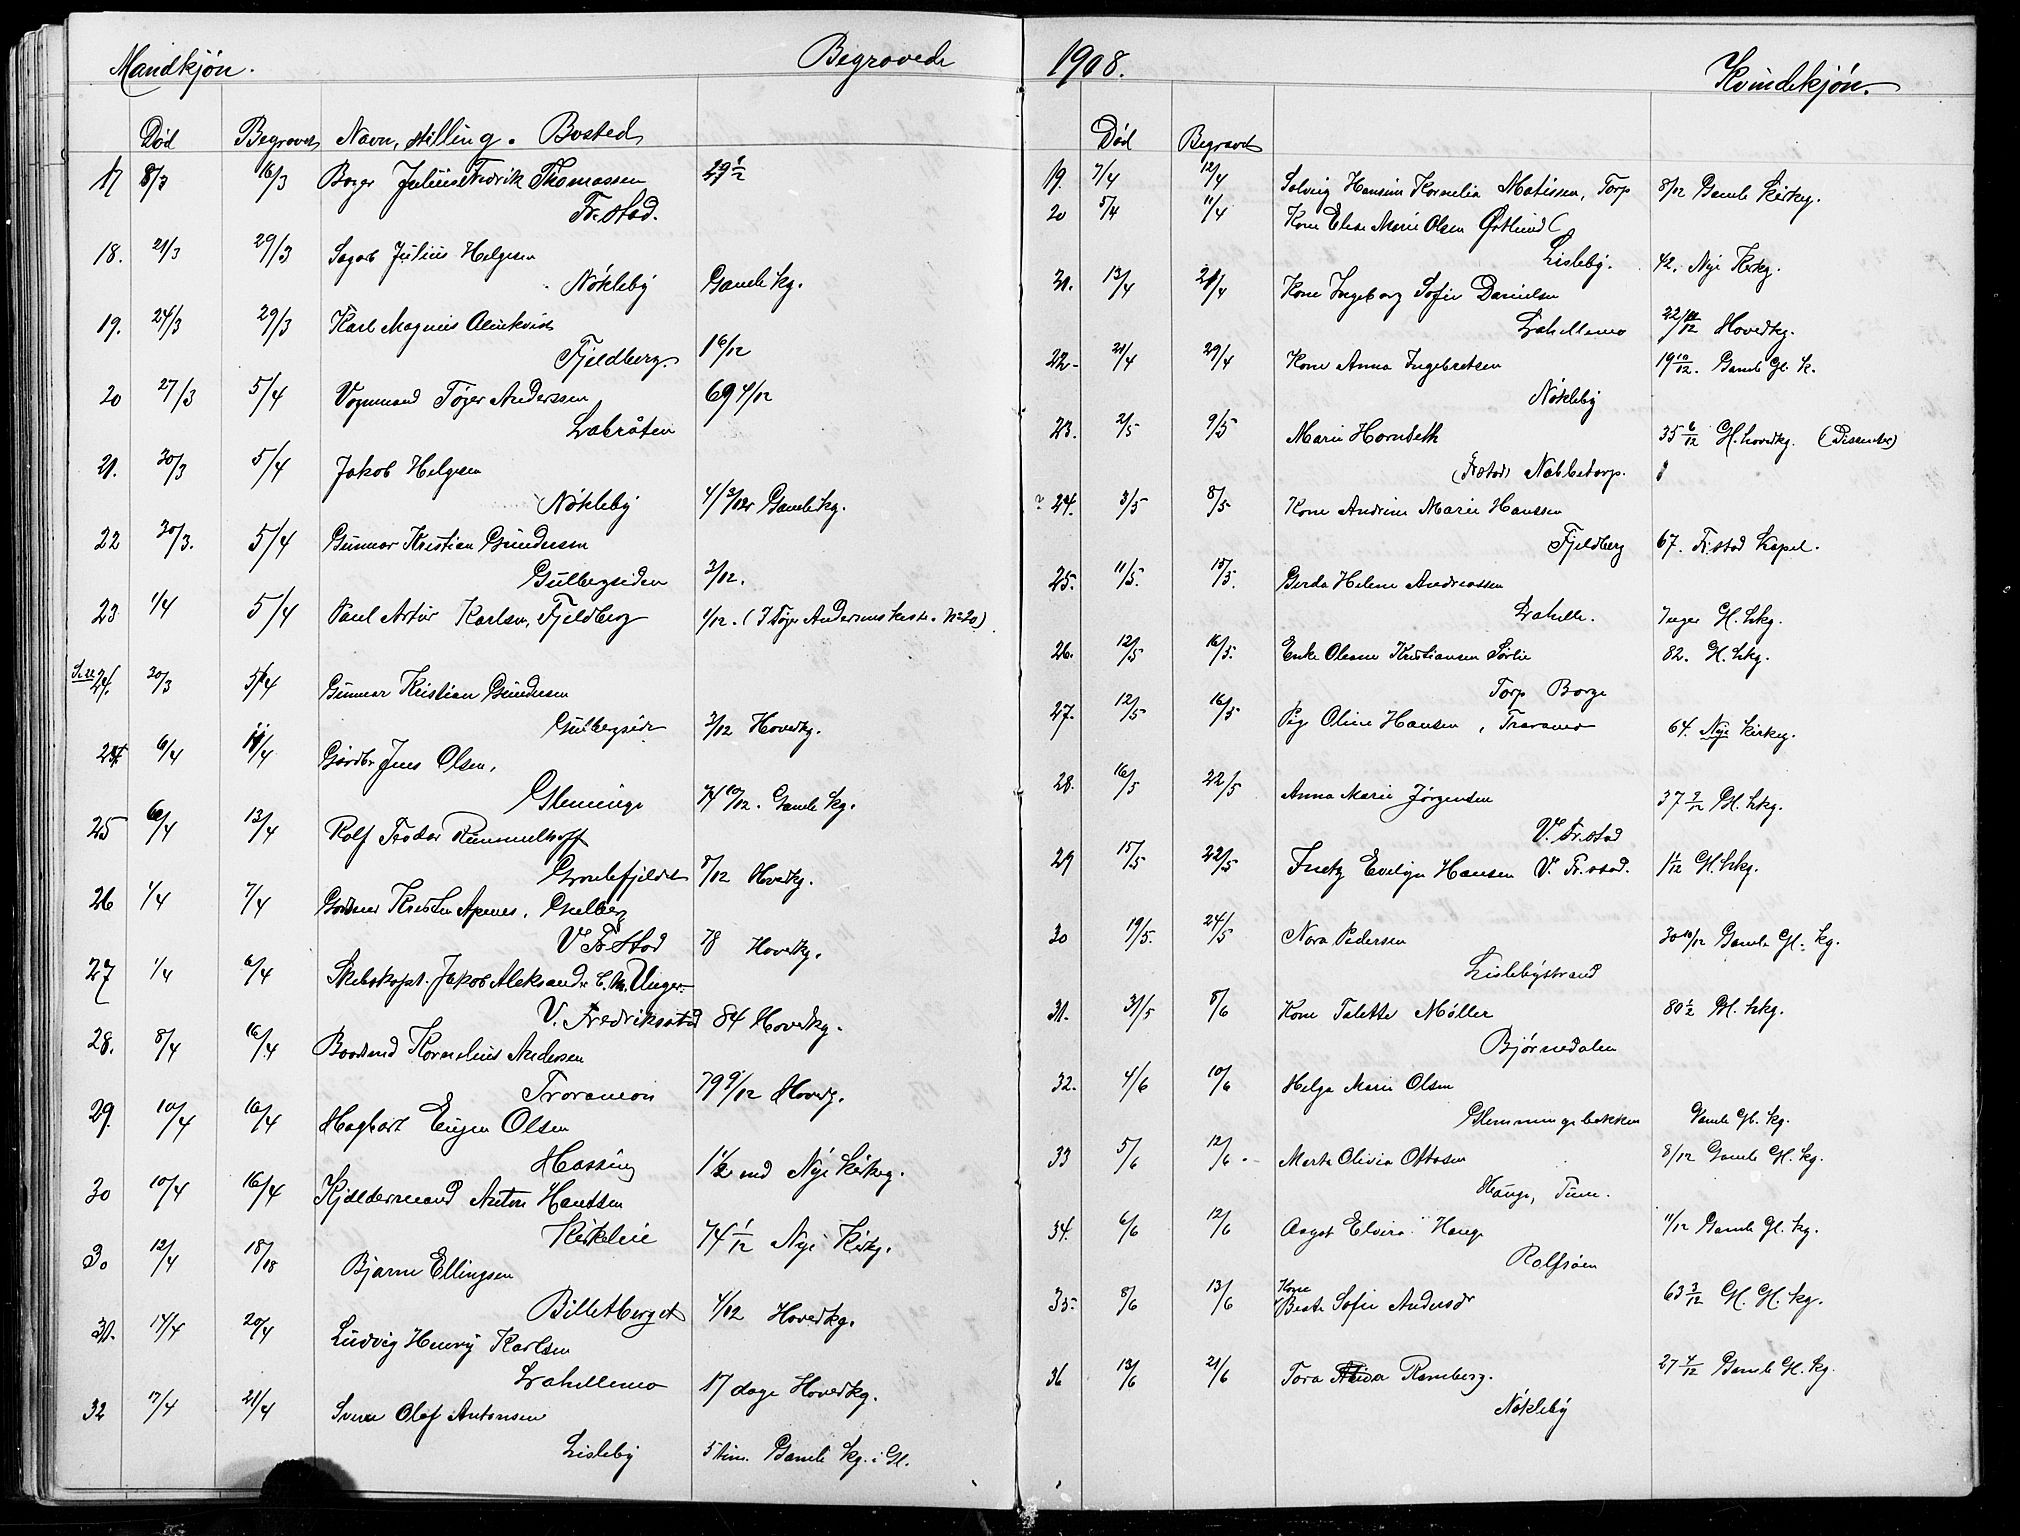 Mandkjøn. Begravede
Død Begravet Navn, stilling. Bosted
17 8/3 16/3 Julius Fredrik Thomassen 29 1/2
Fr.stad.
18. 21/3 29/3 Julius Helgesen
Nökleby Gamle kg.
19. 24/3 29/3 Karl Magnus Almkvist
Fjeldberg. 1 6/12
20 27/3 5/4 Vognmand Töger Anderssen 69 4/12
Labråten
21. 30/3 5/4 Jakob Helgesen
Nökleby Gamle kg.
22 30/3. 5/4 Gunnar Kristian Gundersen
Gulbergsiden 3/12.
23 1/4 5/4 Paul Artur Karlsen, Fjeldberg 1/12. (I Töger Andersens kiste. No 20)
24. 30/3 5/4 Gunnar Kristian Gundersen
Gulbergside 3/12 Hovedkg.
6/4 11/4 Gårdbr Jens Olsen,
Glemminge 74 10/12. Gamle kg.
25 13/4 Rolf Teodor Rummelhoff
8/12 Hovedkg.
26 1/4 7/4
V Fr.stad 78 Hovedkg.
27 1/4 6/4 Skibskapt. Jakob Aleksander C. M. Unger.
V. Fredriksstad 84 Hovedkg.
28. 8/4 16/4 Kornelius Andersen
79 9/12 Hovedkg.
29. 10/4 16/4 Hagbart Eugen Olsen
Hassing 1 1/2 md Nye Kirkeg.
30 10/4 16/4 Kjældermand Anton Hanssen
74 1/12 Nye Kirkg.
30 12/4 Bjarne Ellingsen
Billetberget 4/12 Hovedkg.
31. 14/4 20/4 Ludvig Henry Karlsen
Lahellemo 17 dage Hovedkg.
32 17/4 21/4 Sverre Olaf Antonsen
Lisleby 5 tim. Gamle kg. i Gl.
1908. Kvindekjøn.
Død Begravet
19. 7/4 12/4 Solveig Hansine Kornelia Matissen, Torp 8/12 Gamle Kirkeg.
20 5/4 11/4 Kone Elise Marie Olsen Østlund
Lisleby. 42. Nye Kirkg.
21. 13/4 21/4 Kone Ingeborg Sofie Danielsen
Lahellemo Hovedkg.
22. 21/4 29/4 Kone Anna Ingebretsen 19 10/12. Gamle Gl. K.
Nökleby
23. 2/5 9/5 Marie Hornseth 35 6/12 Gl. hovedkg. (Dissenter)
(Fr.stad) Nabbetorp.
24. 3/5 8/5 Kone Andrine Marie Hanssen
Fjeldberg 67. Fr.stad Kapel.
25. 11/5. 15/5. Gerda Helene Andreassen
Lahelle. Gl. hkg.
26. 12/5 16/5. Enke Oleane Kristiansen Sörlie 82. Gl. hkg.
Torp Borge
27. 12/5 16/5 Pige Oline Hansen, Traramo 64. Nye Kirkeg.
28. 16/5 22/5 Anna Marie Jörgensen 37 Gl. hkg.
V. Fr.stad
29 15/5 22/5 Evelyn Hansen V. Fr.stad. 1 1/12 Gl. hkg.
30 19/5. 24/5 Nora Pedersen 30 10/12 Gamle Gl. kg.
Lislebystrand
31. 31/5 8/6 Kone Talette Möller 80 1/2 Gl. hkg.
Bjørnedalen
32. 4/6 10/6 Helga Marie Olsen
Glemmingebakken Gamle Gl. kg.
33 5/6 12/6. Marta Olivia Ottosen 8/12 Gamle Gl. kg.
Hauge, Tune.
34. 6/6 12/6 Aagot Elvira Hauge 11/12 Gamle Gl. kg.
Rolfsöen
35. 8/6 13/6 Kone Sofie 63 3/12 Gl. Gl. kg.
36 13/6 21/6 Tora Ramberg. 27 4/12 Gamle Gl. kg.
Nökleby